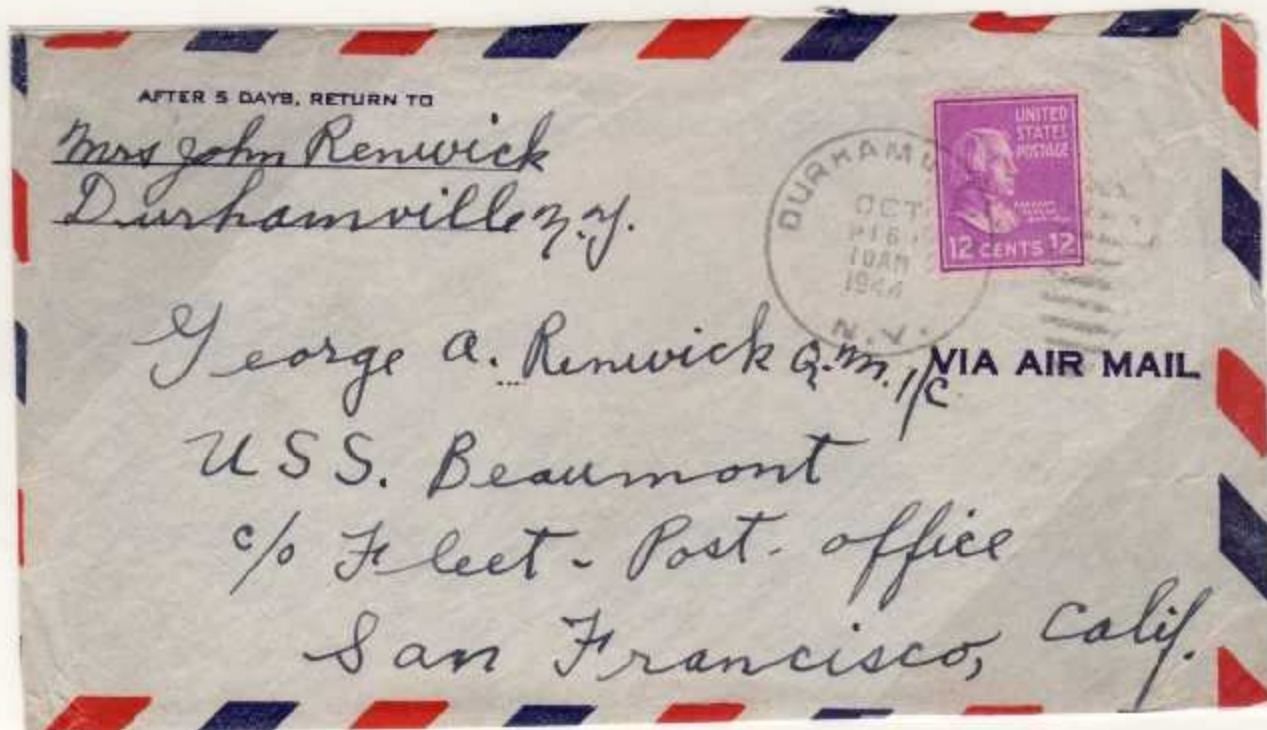 AFTER 5 DAYS, RETURN TO
Mrs John Renwick
Durhamville N.Y.
UNITED
STATES
POSTAGE
12 CENTS 12
OCT
10AM
1944
N.Y.
George A. Renwick Q.M. 1/c
VIA AIR MAIL
USS. Beaumont
c/o Fleet - Post - office
San Francisco, Calif.